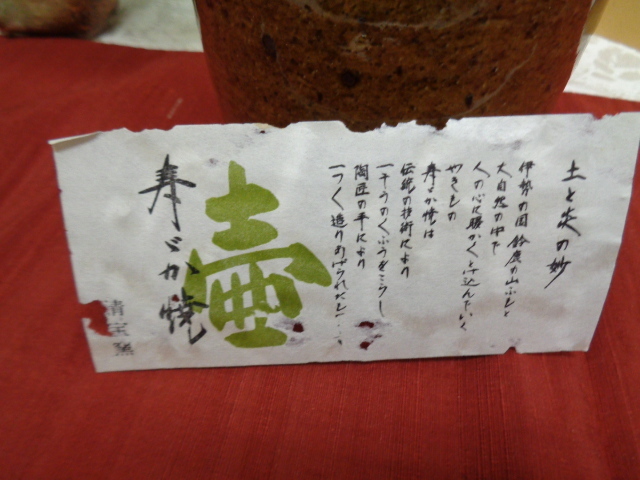 土と炎の妙
伊勢の国 鈴鹿の山ふもと
大自然の中で
人の心に暖かくとけ込んでいく
やきもの
寿ゞか焼は
伝統の技術により
のくふうをこらし
陶匠の手により
一つ〱造りあげられたもの・・・
壺
寿ゞか焼
清宝窯